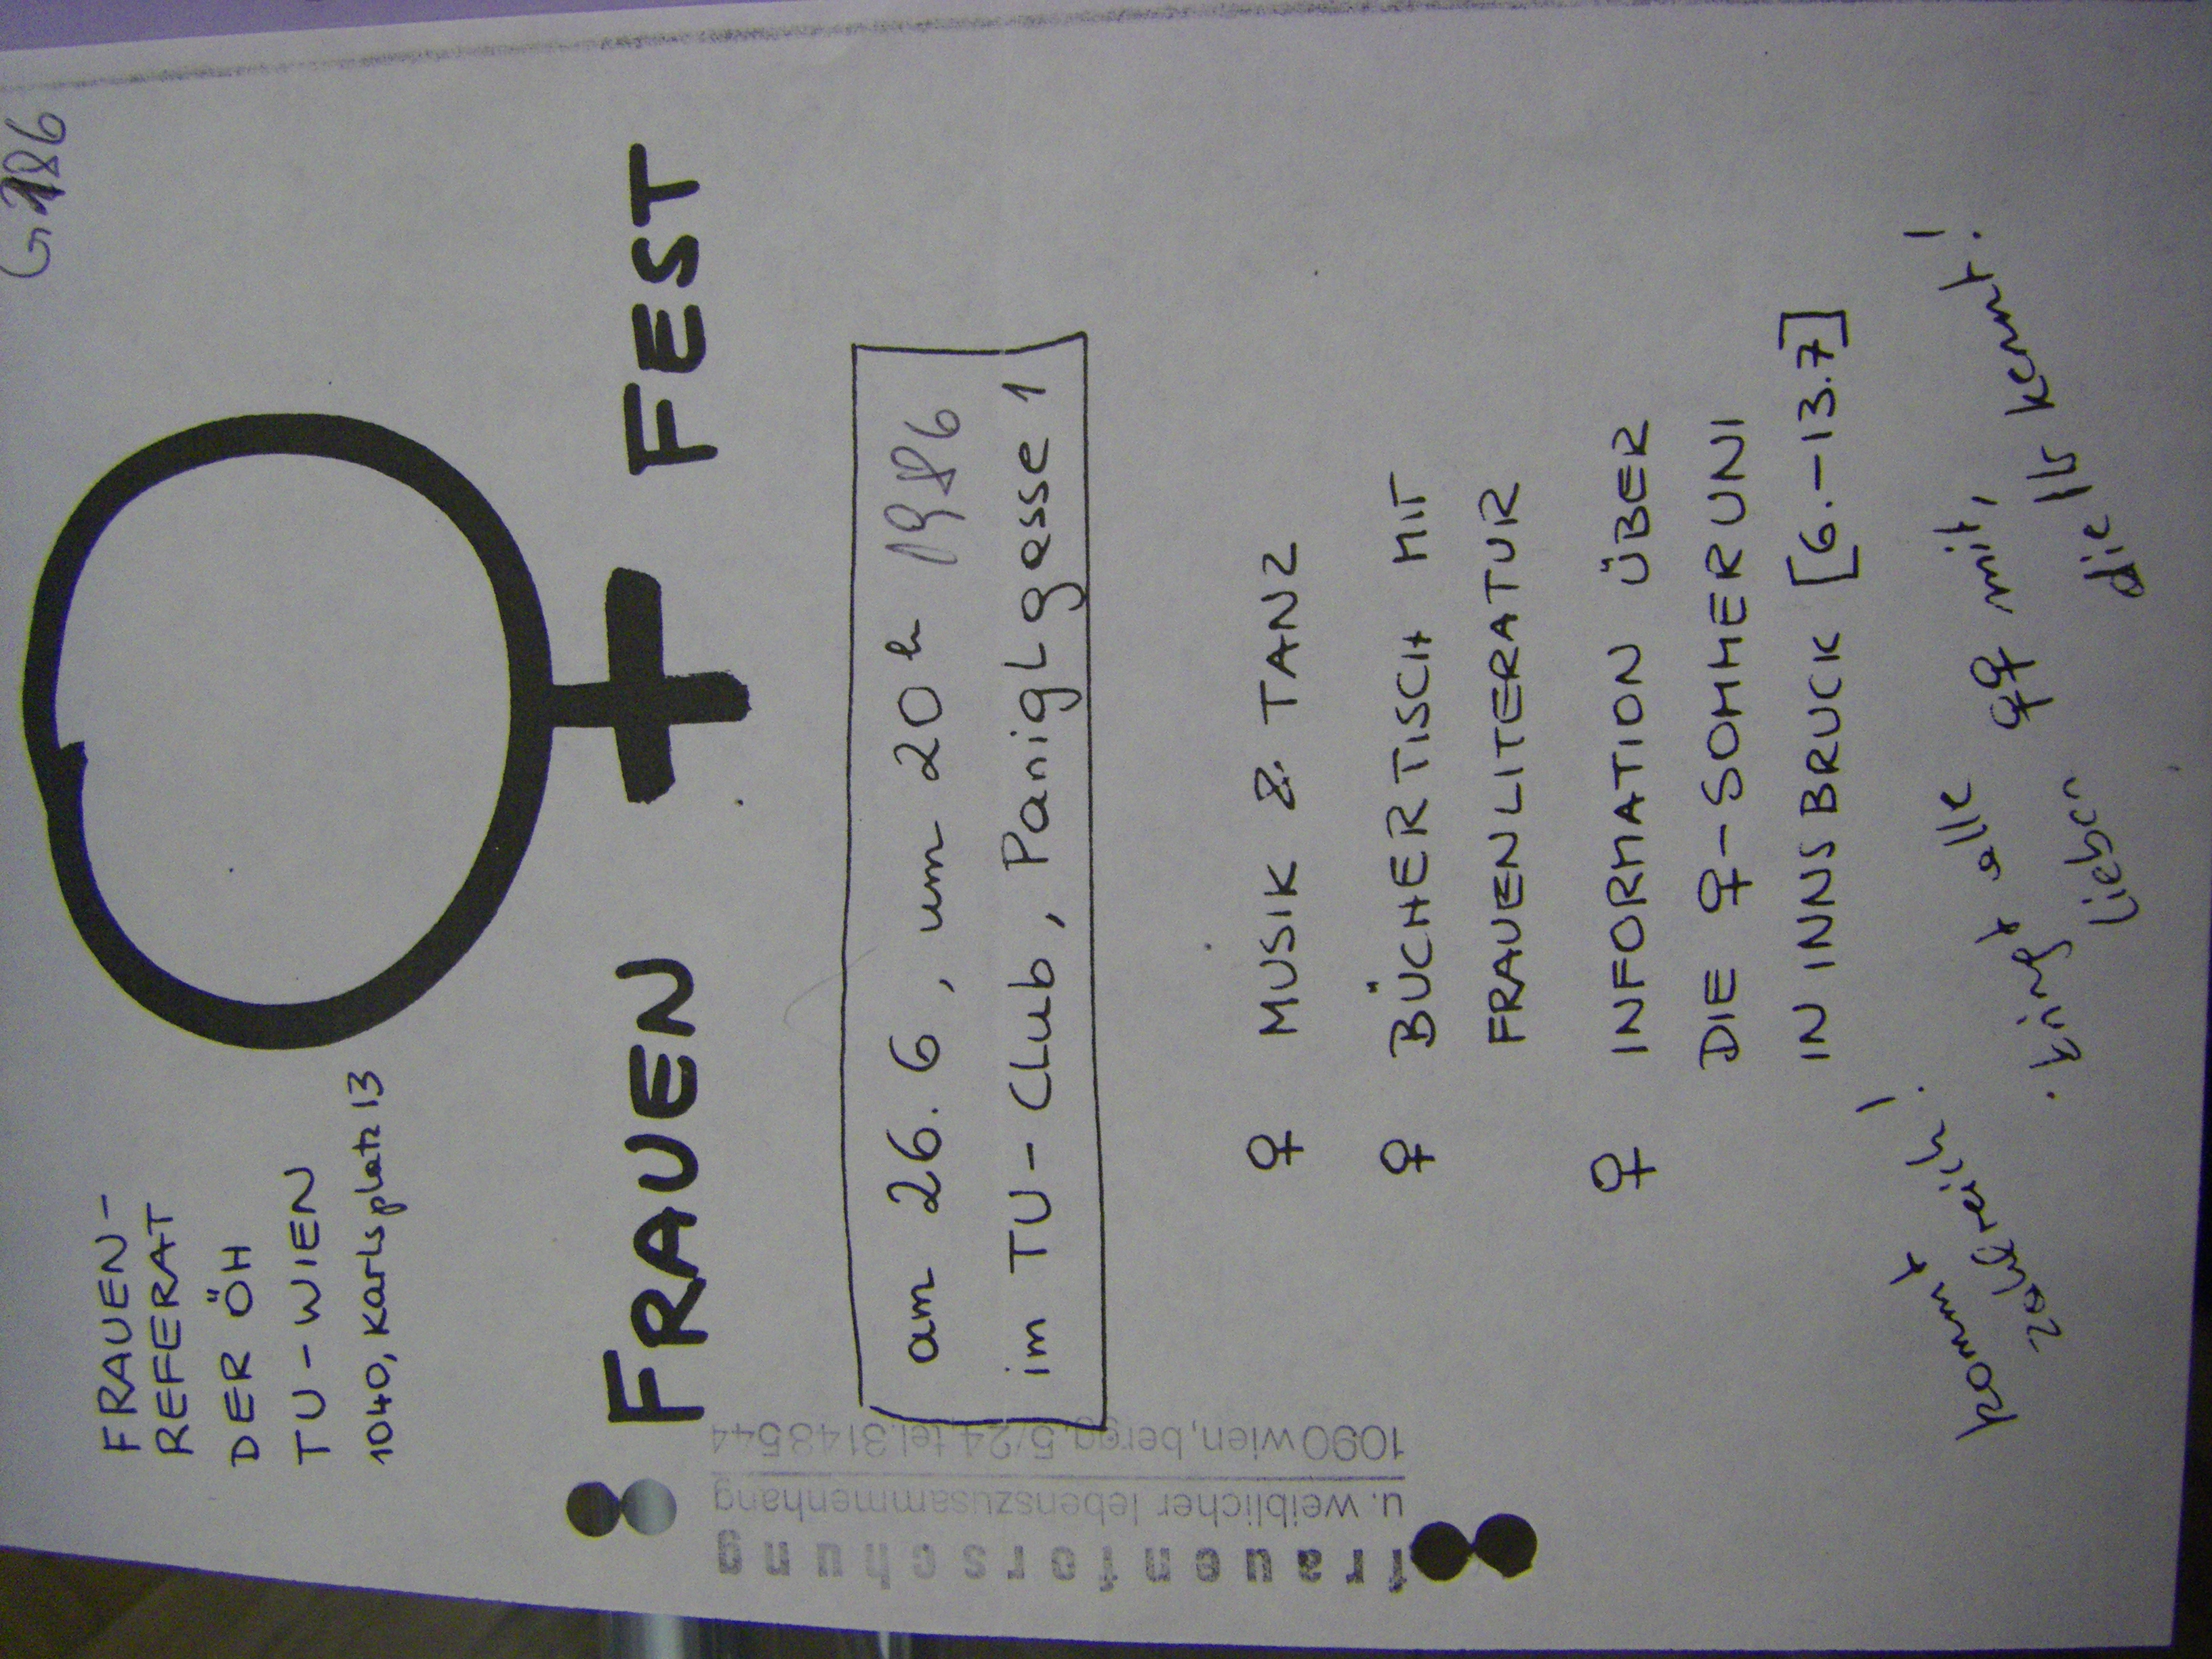 FRAUEN-
REFERAT
DER ÖH
TU-WIEN
1040, Karlsplatz 13
FRAUEN FEST
am 26. 6, um 20h 1986
im TU-Club, Paniglgasse 1
♀ MUSIK & TANZ
♀ BÜCHERTISCH MIT
FRAUENLITERATUR
♀ INFORMATION ÜBER
DIE ♀-SOMMERUNI
IN INNSBRUCK [6.-13.7]
kommt
zahlreich!
. bringt alle ♀♀ mit,
lieben die Ihr kennt!
frauenforschung
u. weiblicher lebenszusammenhang
1090 wien, bergg. 5/24, tel. 3143544